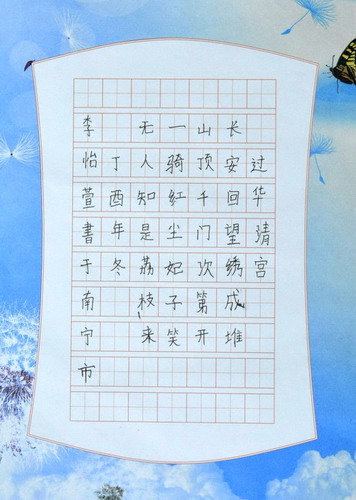 过华清宫
长安回望绣成堆
山顶千门次第开
一骑红尘妃子笑
无人知是荔枝来
丁酉年冬
李怡萱書于南宁市